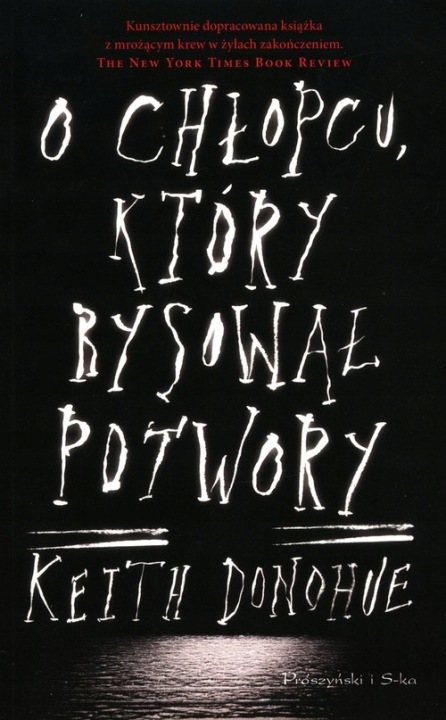 Kunsztownie dopracowana książka
z mrożącym krew w żyłach zakończeniem.
THE NEW YORK TIMES BOOK REVIEW
O CHŁOPCU,
KTÓRY
RYSOWAŁ
POTWORY
KEITH DONOHUE
Prószyński i S-ka